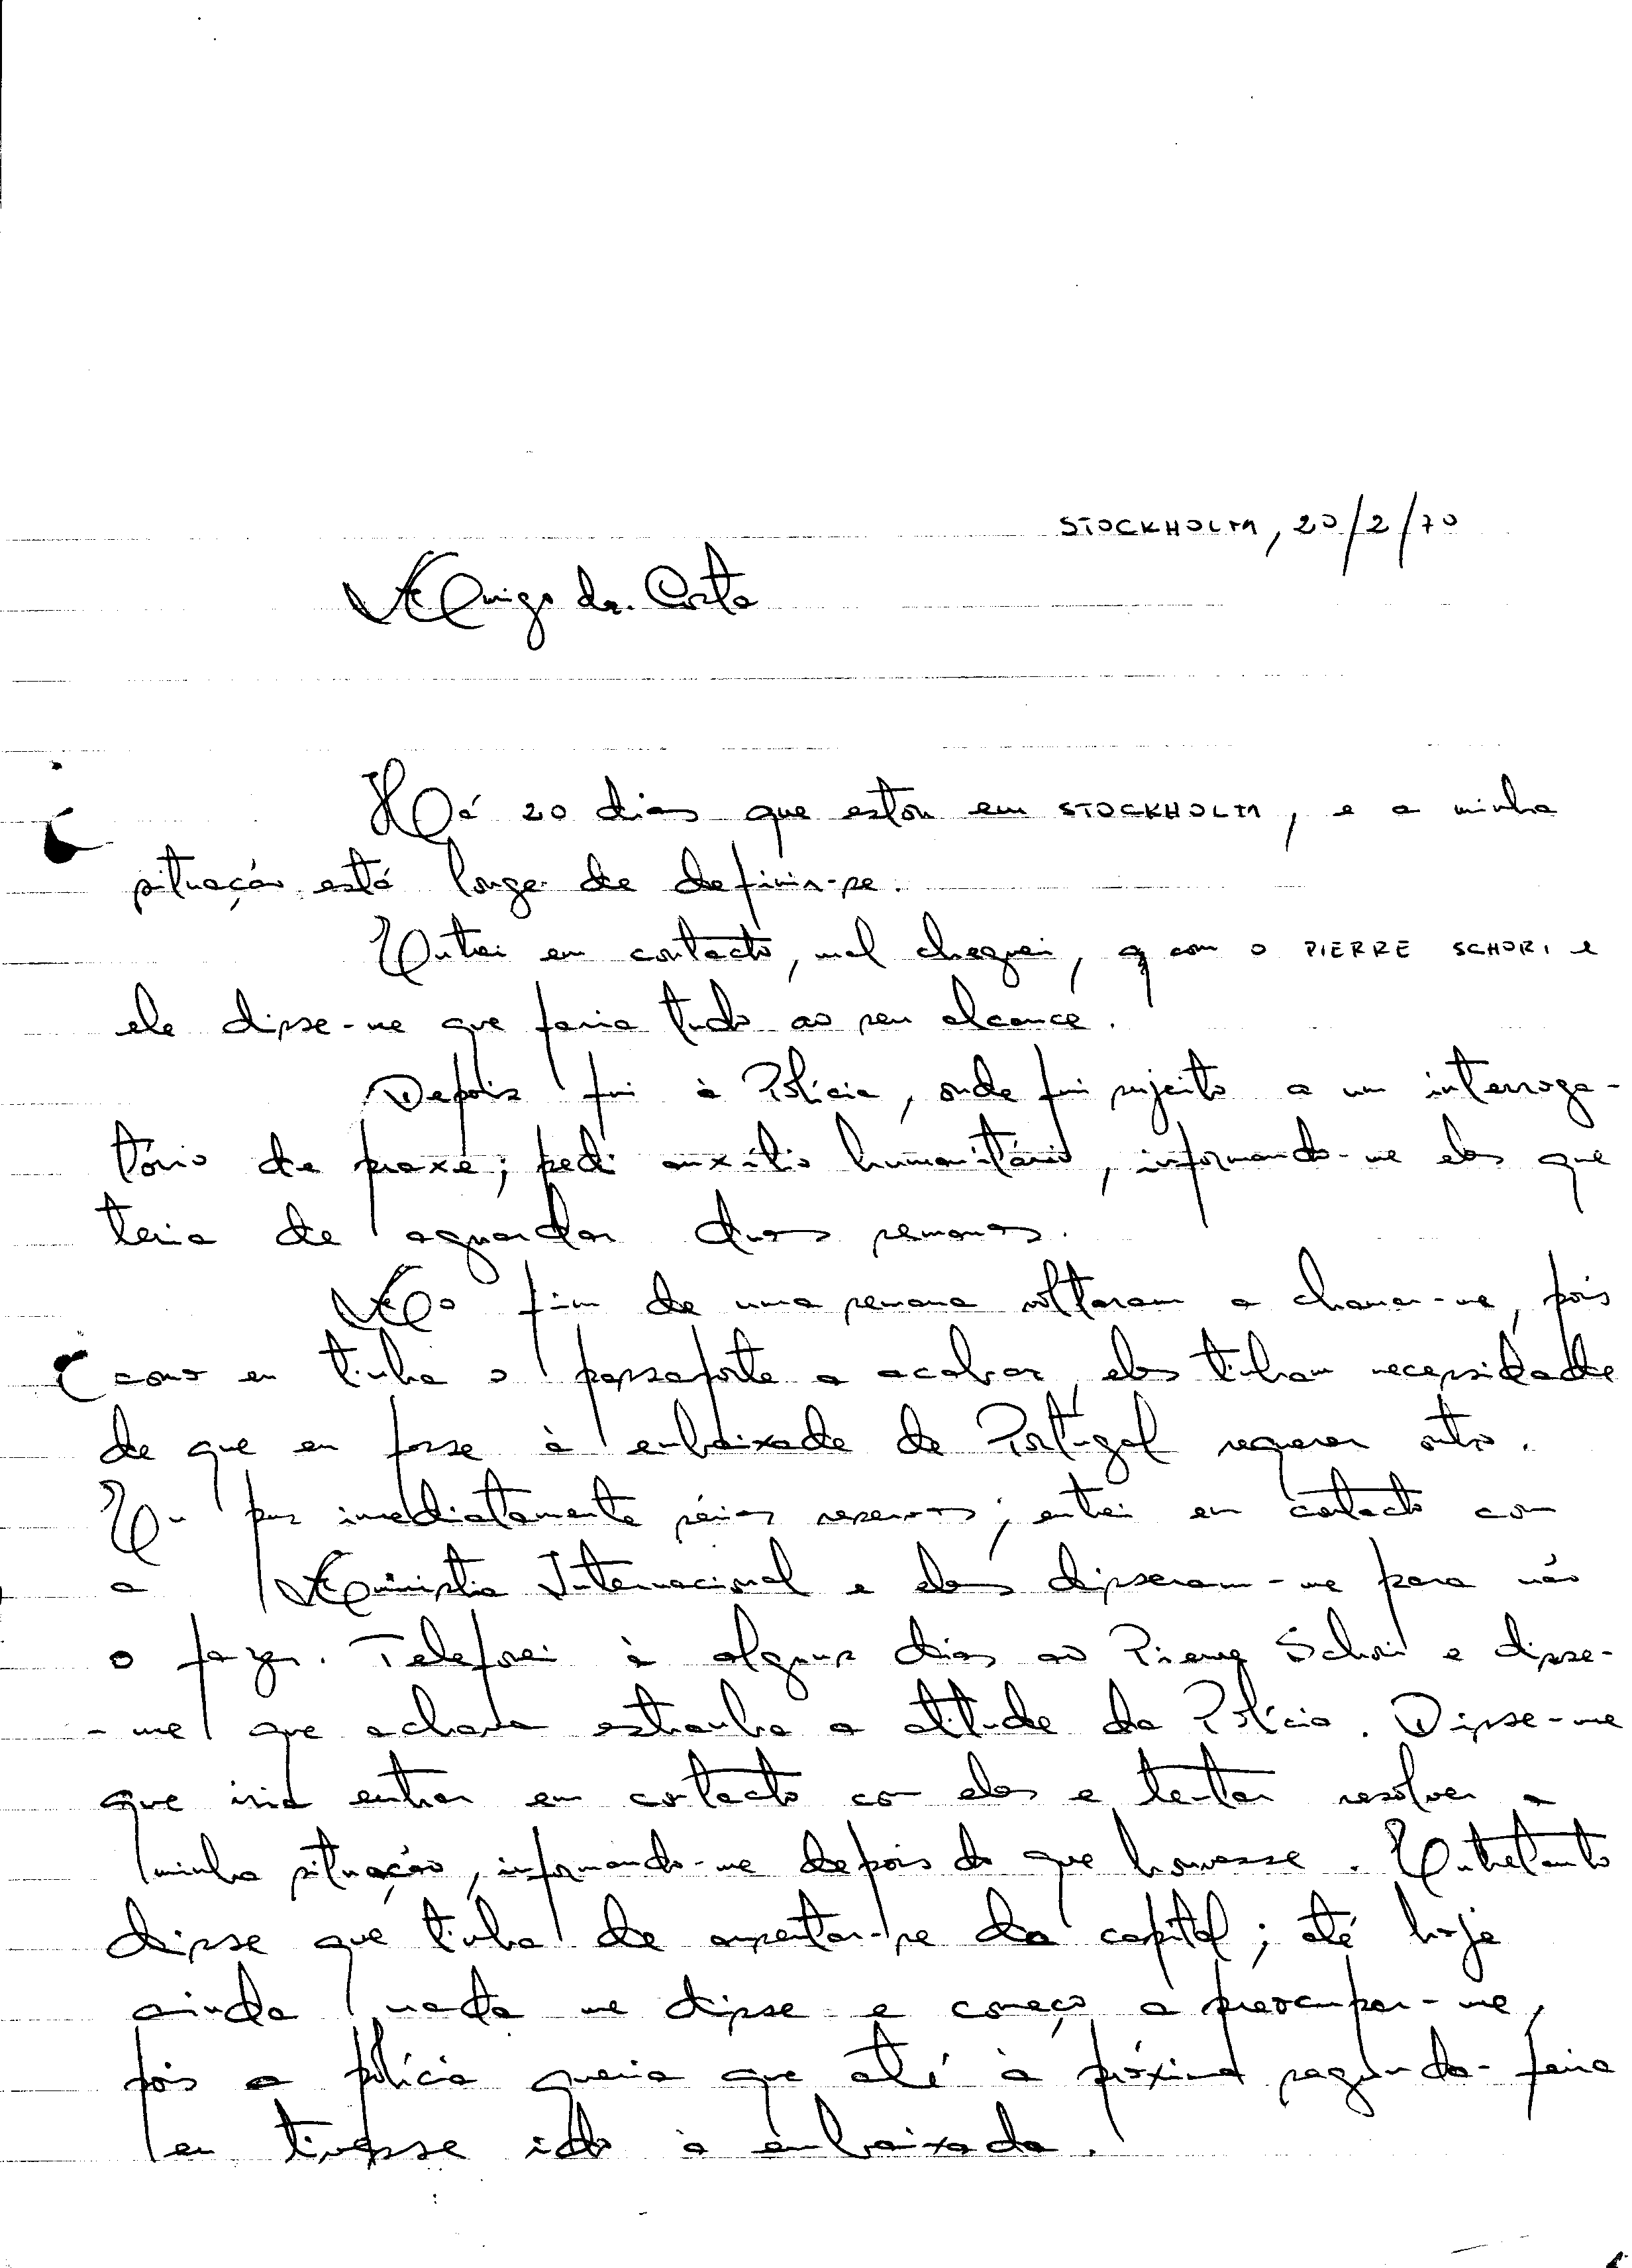 STOCKHOLM, 20/2/70
Amigo dr. Costa
Há 20 dias que estou em STOCKHOLM, e a minha
situação está longe de definir-se.
Entrei em contacto, mal cheguei, q com o PIERRE SCHORI e
ele disse-me que faria tudo ao seu alcance.
Depois fui à Polícia, onde fui sujeito a um interroga-
tório de praxe; pedi auxílio humanitário, informando-me eles que
teria de aguardar duas semanas.
Ao fim de uma semana voltaram a chamar-me, pois
como eu tinha o passaporte a acabar, eles tinham necessidade
de que eu fosse à embaixada de Portugal requerer outro.
Eu pus imediatamente sérias reservas; entrei em contacto com
a Amnistia Internacional e eles disseram-me para não
o fazer. Telefonei à alguns dias ao Pierre Schori e disse-
-me que achava estranha a atitude da Polícia. Disse-me
que iria entrar em contacto com eles e tentar resolver a
minha situação, informando-me depois do que houvesse. Entretanto
disse que tinha de ausentar-se da capital; até hoje
ainda nada me disse e começo a preocupar-me,
pois a polícia queria que até à próxima segunda-feira
eu tivesse ido à embaixada.